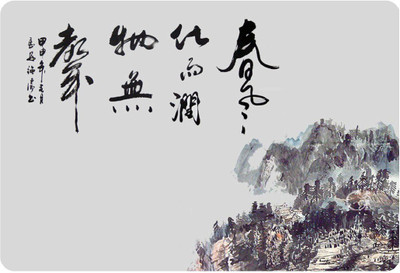 春風
化雨潤
物無
聲
甲申年